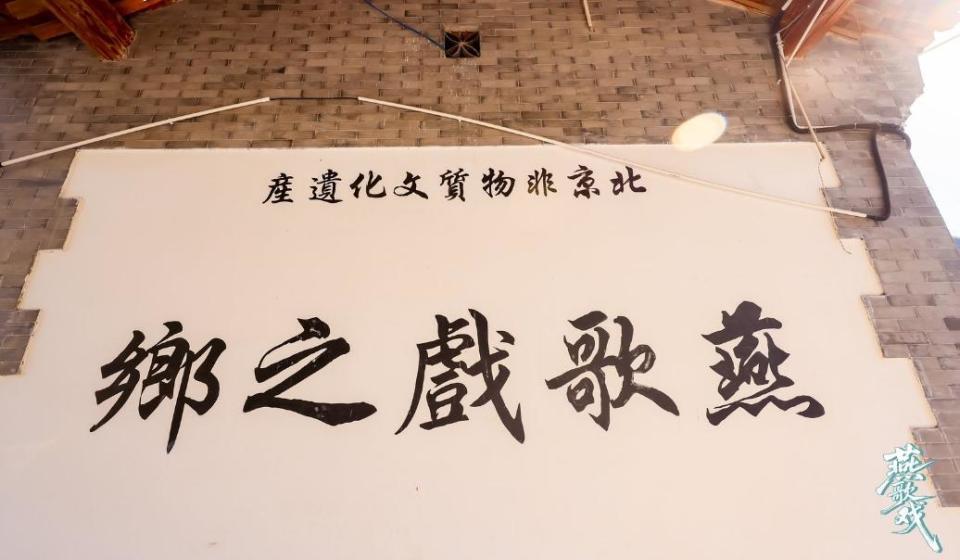 北京非物質文化遺產
燕歌戲之鄉
燕歌戏